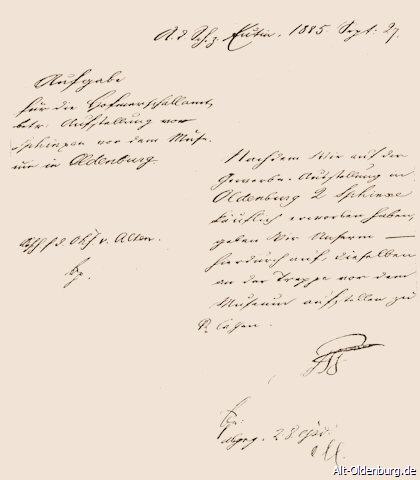 A. d. Sch. z. Eutin. 1885 Sept: 27.
Aufgabe
für die Hofmarschallamt,
betr. Aufstellung von
Sphinxen vor dem Muse-
um in Oldenburg
Nachdem Wir auf der
Gewerbe-Ausstellung in
Oldenburg 2 Sphinxe
käuflich erworben haben,
geben Wir Unserm —
hierdurch auf, dieselben
an der Treppe vor dem
Museum aufstellen zu
lassen.
v. Alten.
28
Alt-Oldenburg.de